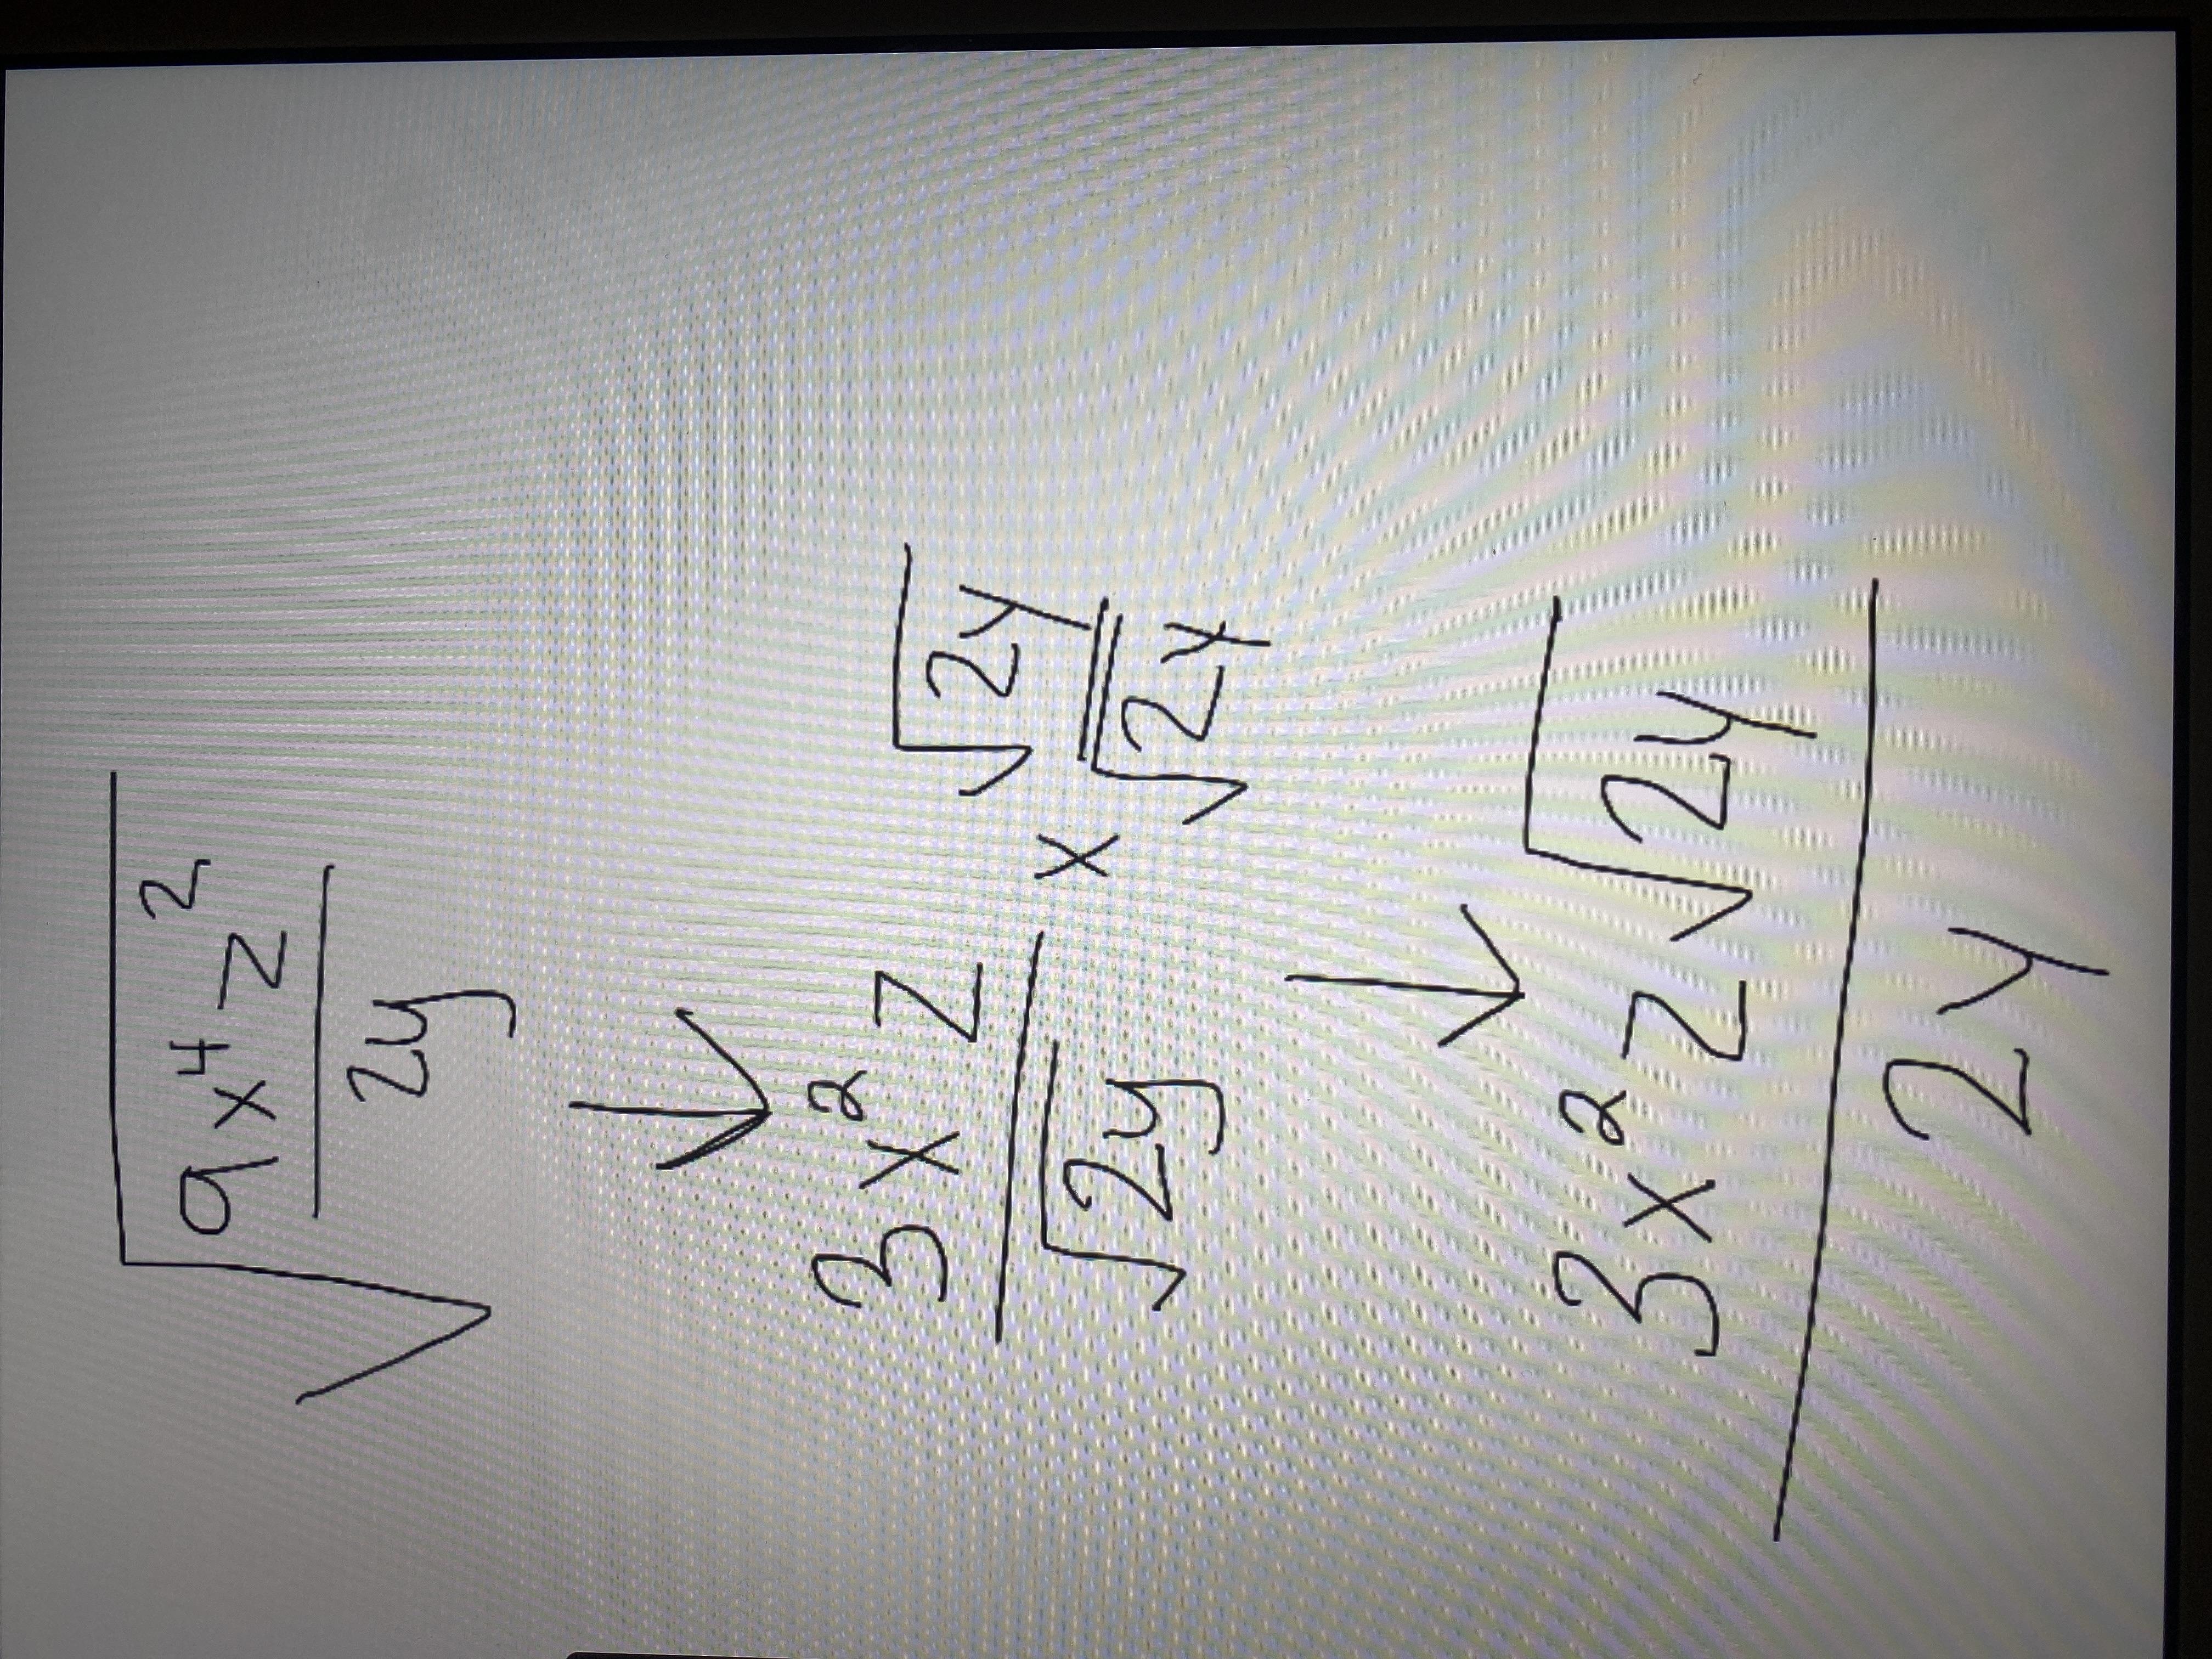 √(9x⁴z²/2y)
↓
3x²z/√2y × √2y/√2y
↓
3x²z√2y/2y